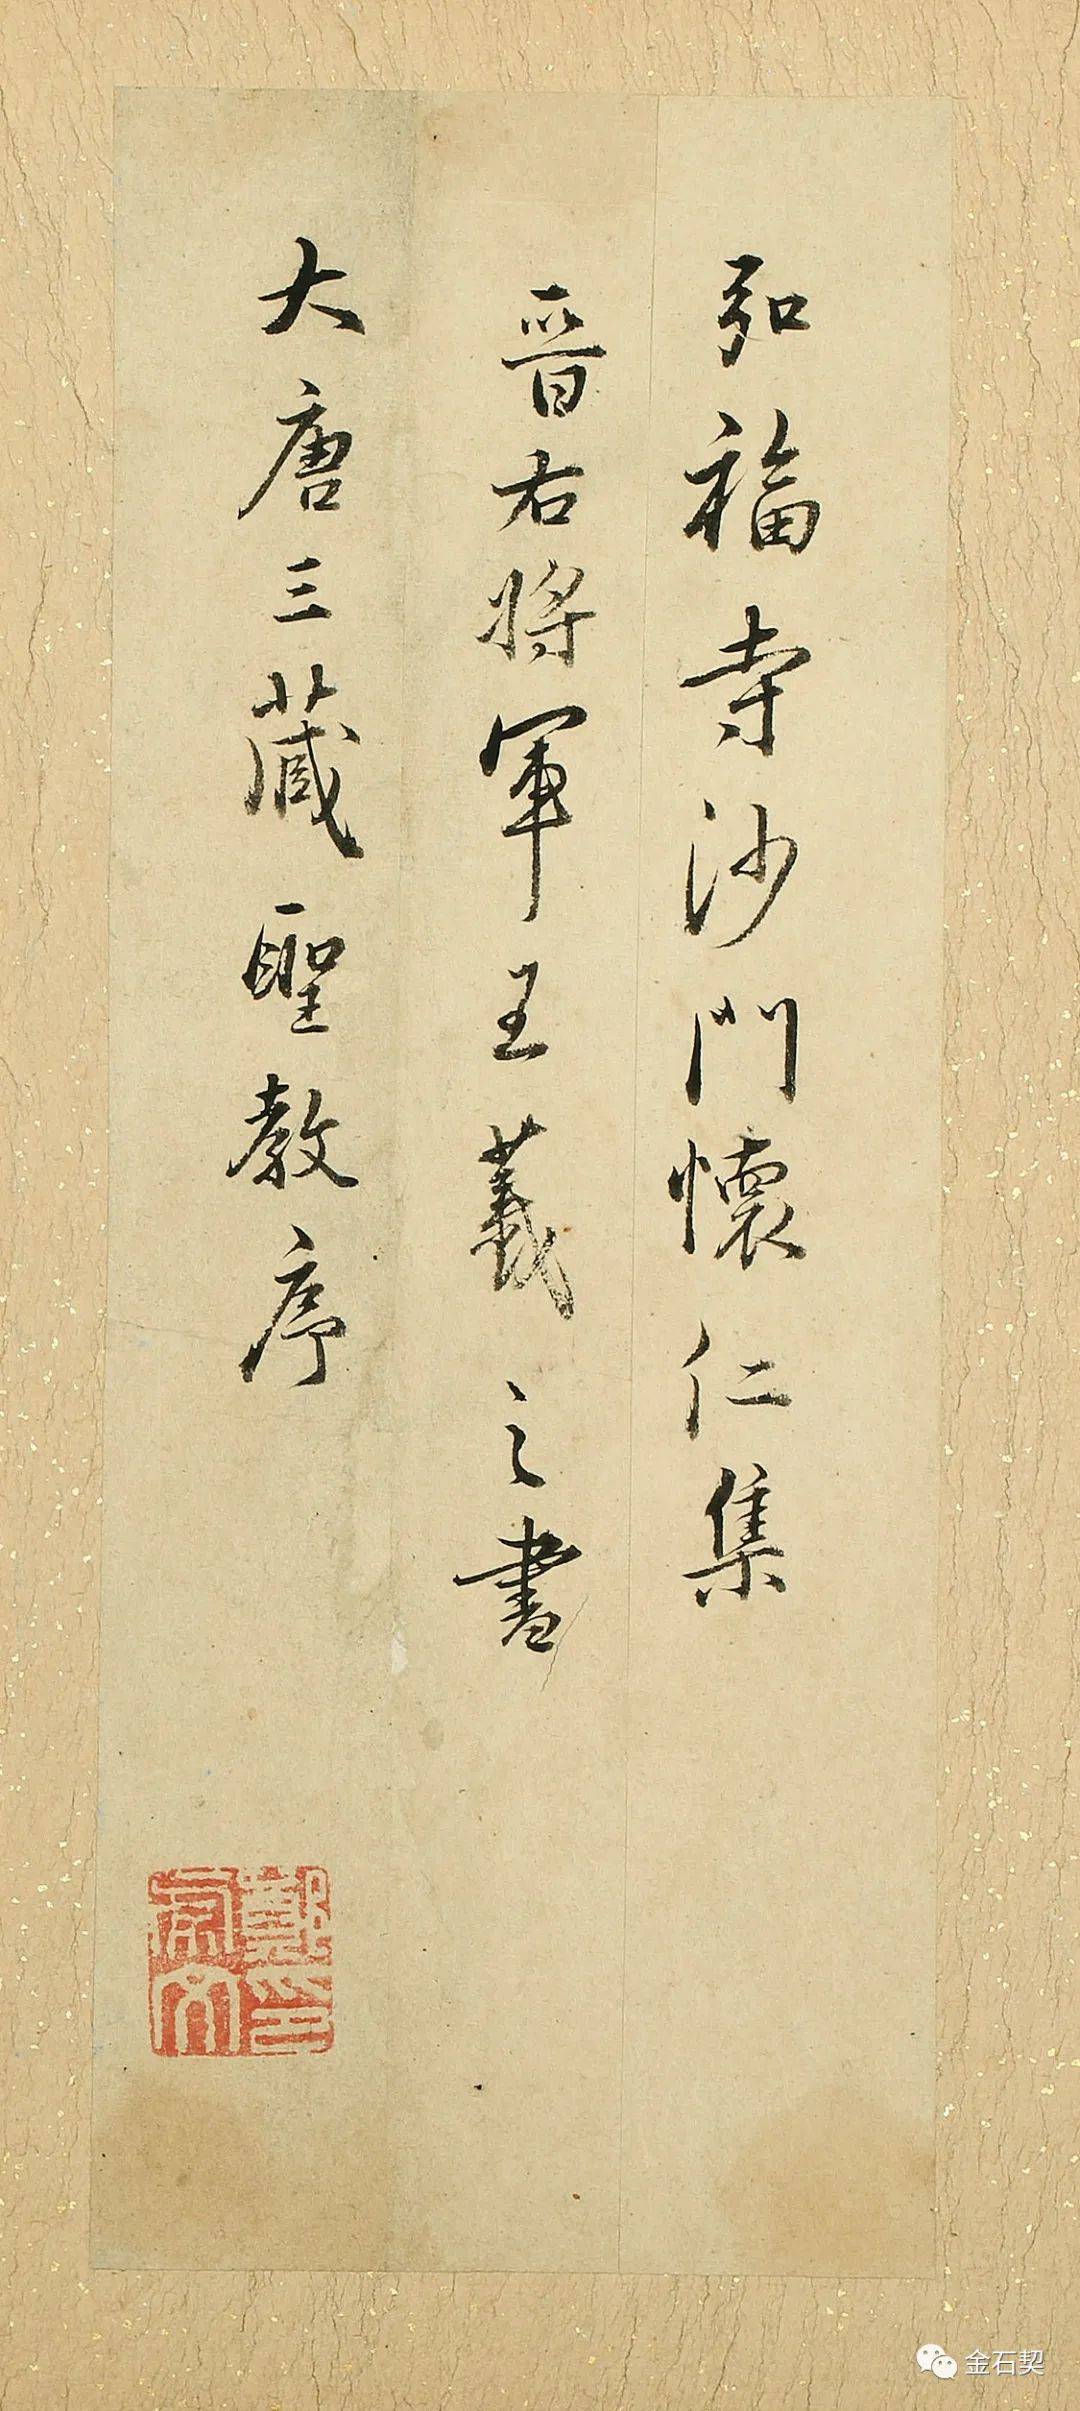 弘福寺沙門懷仁集
晉右將軍王羲之書
大唐三藏聖教序
金石契